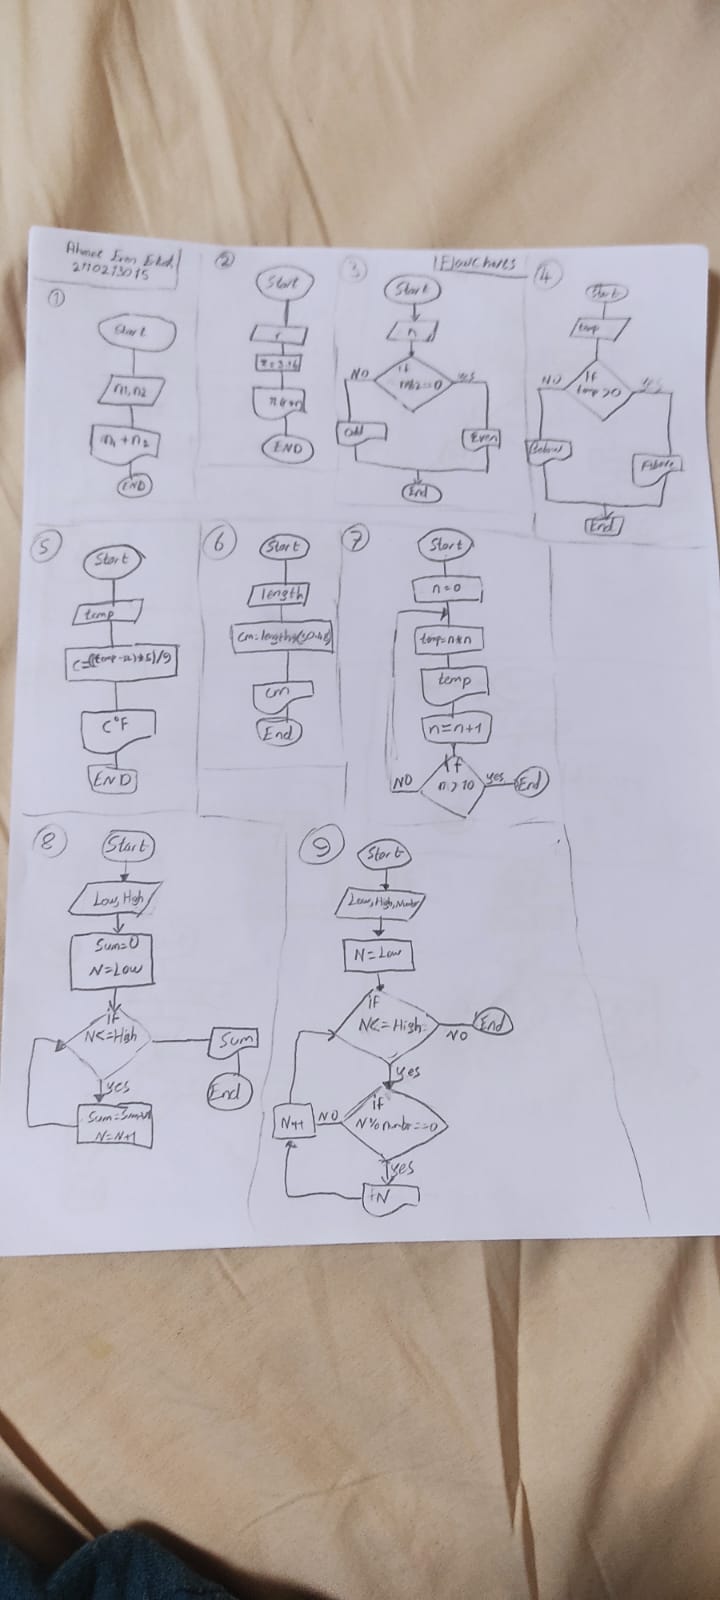 Ahmet Eren
2110213015
Flowcharts
1
Start
n1, n2
n1 + n2
END
2
Start
r
END
3
Start
n
if
NO
yes
Odd
Even
End
4
Start
temp
If
temp>0
NO
yes
Below
Above
End
5
Start
temp
C°F
END
6
Start
length
cm
End
7
Start
n=0
temp=n*n
temp
n=n+1
If
n>10
NO
yes
End
8
Start
Low, High
Sum=0
N=Low
if
N<=High
yes
N=N+1
Sum
End
9
Start
Low, High, Number
N=Low
if
N<=High
NO
End
yes
if
N%number==0
NO
N++
yes
N